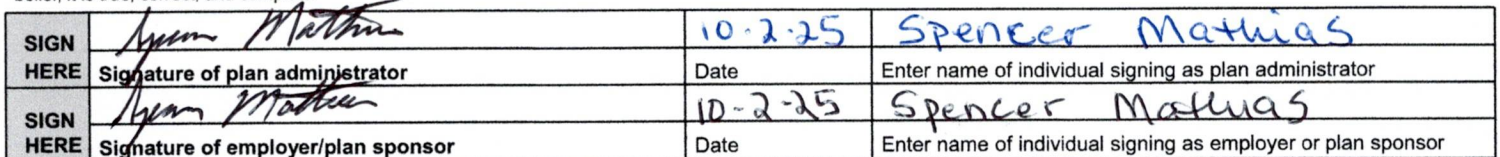 SIGN Spencer Mathias 10-2-25 Spencer Mathias
HERE Signature of plan administrator Date Enter name of individual signing as plan administrator
SIGN Spencer Mathias 10-2-25 Spencer Mathias
HERE Signature of employer/plan sponsor Date Enter name of individual signing as employer or plan sponsor